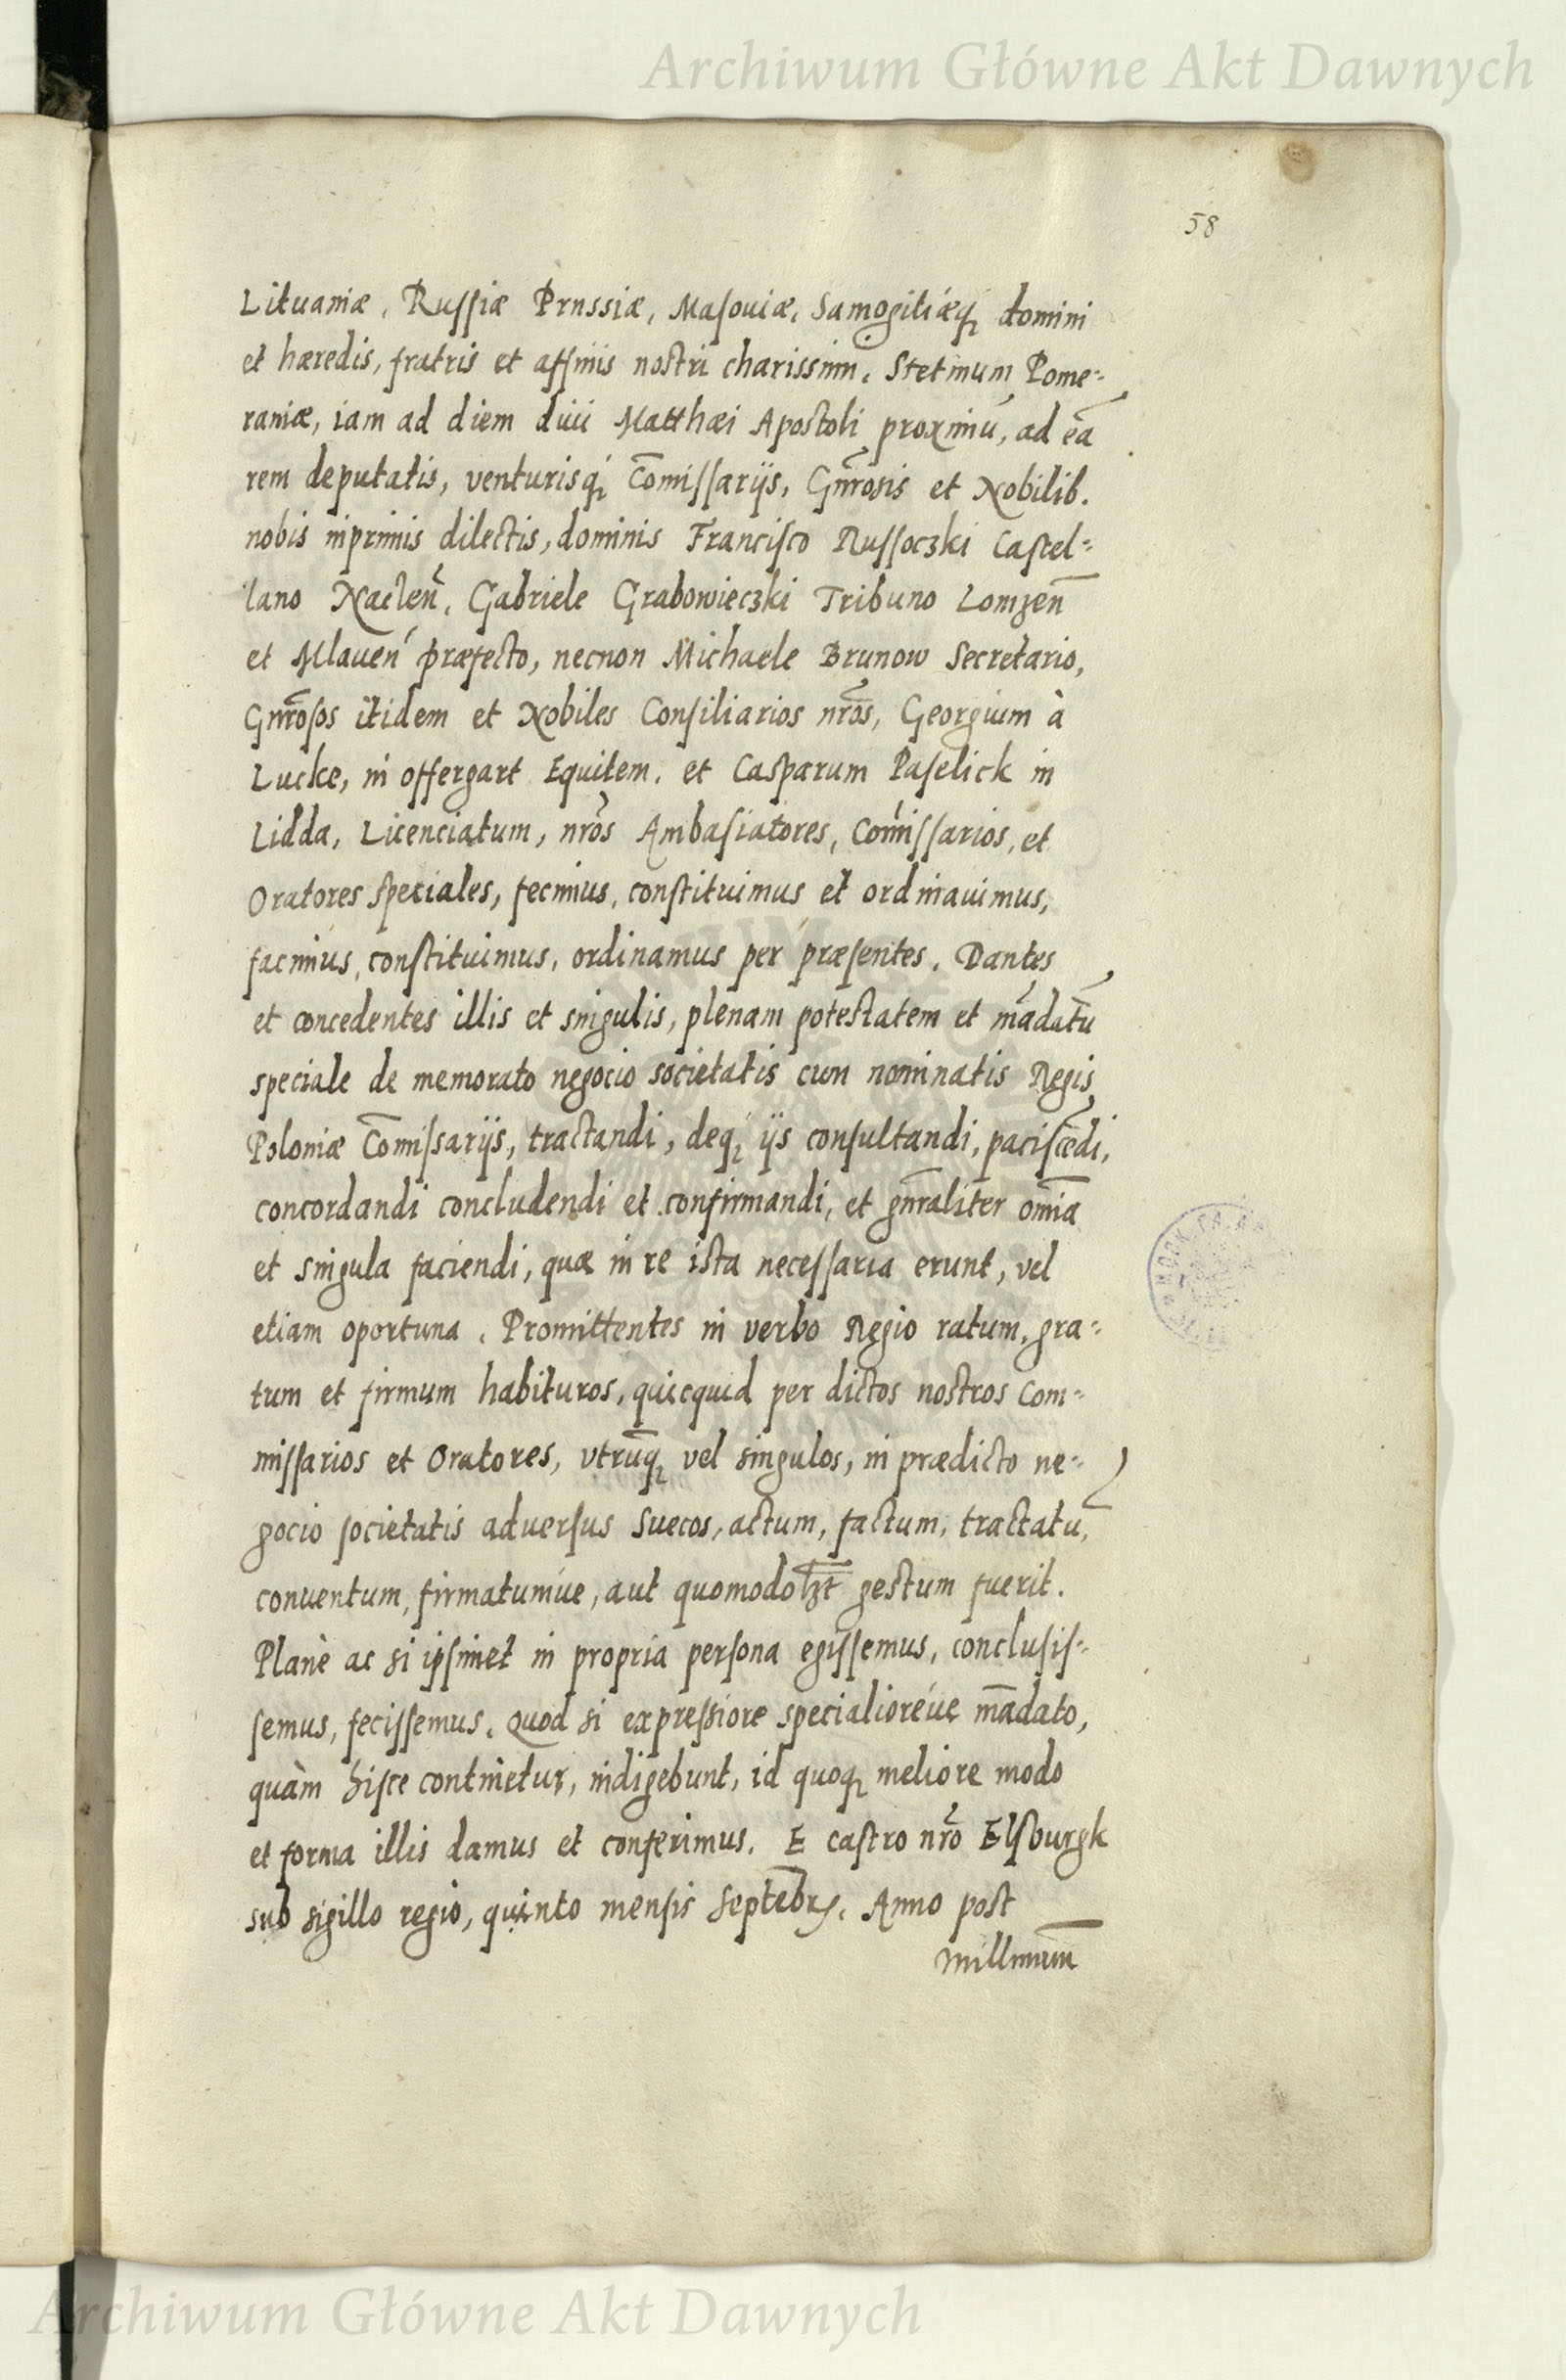 Archiwum Główne Akt Dawnych
58
Lituaniæ, Russiæ Prussiæ, Masouiæ, Samogitiæq; domini
et hæredis, fratris et affinis nostri charissimi. Stetinum Pome-
raniæ, iam ad diem diui Matthæi Apostoli proximū, ad eā
rem deputatis, venturisq; Com̄issarijs, Gn̄rosis et Nobilib.
nobis inprimis dilectis, dominis Francisco Russoczki Castel-
lano Naclen̄, Gabriele Grabowieczki Tribuno Lomzen̄
et Mlauen̄ præfecto, necnon Michaele Brunow Secretario,
Gn̄rosos itidem et Nobiles Consiliarios nr̄os, Georgium à
Lucke, in Offergart Equitem, et Casparum Paselick in
Lidda, Licenciatum, nr̄os Ambasiatores, Com̄issarios, et
Oratores speciales, fecimus, constituimus et ordinauimus,
facimus, constituimus, ordinamus per præsentes. Dantes
et concedentes illis et singulis, plenam potestatem et mādatū
speciale de memorato negocio societatis cum nominatis Regis
Poloniæ Com̄issarijs, tractandi, deq; ijs consultandi, paciscēdi,
concordandi concludendi et confirmandi, et gn̄raliter om̄ia
et singula faciendi, quæ in re ista necessaria erunt, vel
etiam oportuna. Promittentes in verbo Regio ratum, gra-
tum et firmum habituros, quicquid per dictos nostros Com-
missarios et Oratores, vtrūq; vel singulos, in prædicto ne-
gocio societatis aduersus Suecos, actum, factum, tractatū,
conuentum, firmatumúe, aut quomodolꝫt gestum fuerit.
Planè ac si ipsimet in propria persona egissemus, conclusis-
semus, fecissemus. Quod si expressiore specialioreúe mādato,
quàm hisce continetur, indigebunt, id quoq; meliore modo
et forma illis damus et conferimus. E castro nr̄o Elsburgk
sub sigillo regio, quinto mensis Septēbrꝭ. Anno post
Millmum̄
Archiwum Główne Akt Dawnych